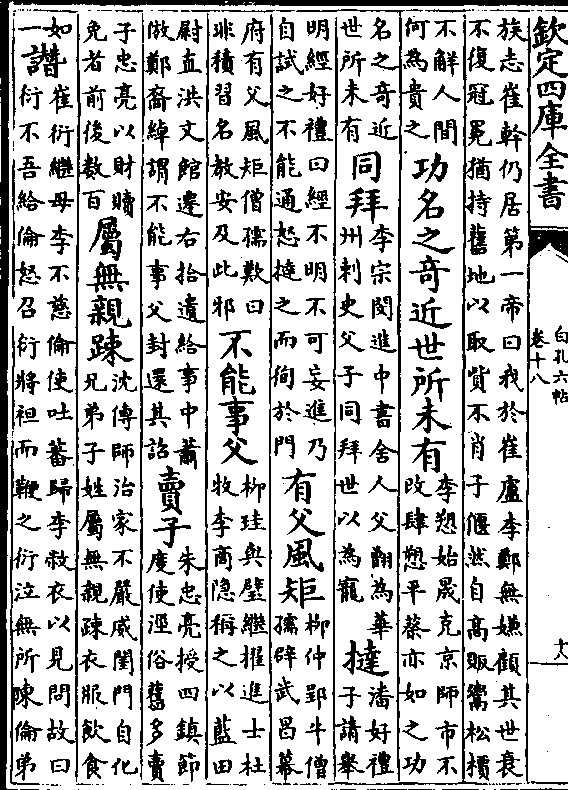 欽定四庫全書
白孔六帖
卷十八
族志崔幹仍居第一帝曰我於崔盧李鄭無嫌顧其世衰
不復冠冕猶持舊地以取貲不肖子偃然自高販鬻松檟
不解人間
何為貴之
功名之奇近世所未有
李愬始晟克京師市不
改肆愬平蔡亦如之功
名之奇近
世所未有
同拜
李宗閔進中書舍人父翻為華
州刺史父子同拜世以為寵
撻
潘好禮
子請舉
明經好禮曰經不明不可妄進乃
自試之不能通怒撻之而徇於門
有父風矩
柳仲郢牛僧
孺辟武昌幕
府有父風矩僧孺歎曰
非積習名教安及此邪
不能事父
柳珪與璧繼擢進士杜
牧李商隐稱之以藍田
尉直洪文館遷右拾遺給事中蕭
倣鄭裔綽謂不能事父封還其詔
賣子
朱忠亮授四鎮節
度使涇俗舊多賣
子忠亮以財贖
免者前後數百
屬無親踈
沈傳師治家不嚴威閨門自化
兄弟子姓屬無親踈衣服飲食
如
一
譖
崔衍繼母李不慈倫使吐蕃歸李敝衣以見問故曰
衍不吾給倫怒召衍將袒而鞭之衍泣無所陳倫弟